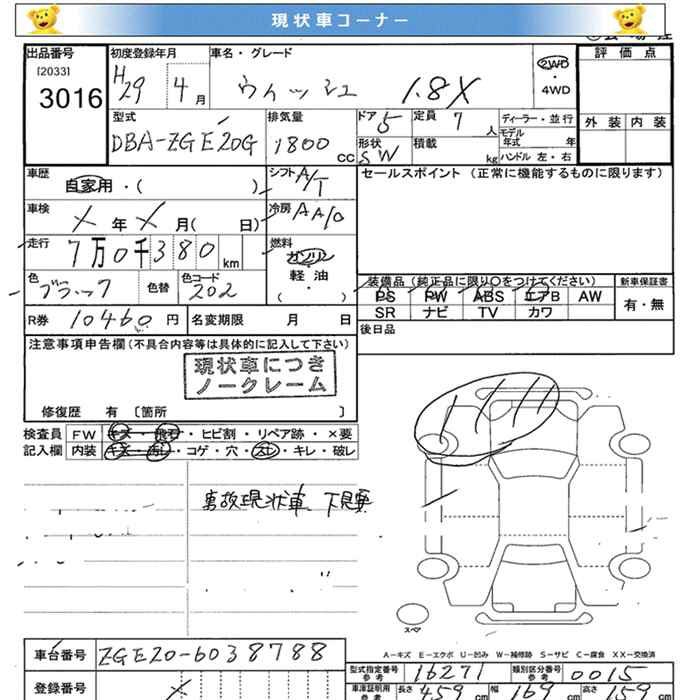 現状車コーナー
出品番号 初度登録年月 車名・グレード 評価点
[2033] 3016 H29 4月 ウィッシュ 1.8X 2WD・4WD
外装 内装
型式 排気量 ドア 5 定員 7人 ディーラー・並行
DBA-ZGE20G 1800cc 形状 SW 積載 kg モデル年式 年
ハンドル 左・右
車歴 自家用・( ) シフト A/T セールスポイント(正常に機能するものに限ります)
車検 X年X月( 日) 冷房 AAC
走行 7万0千380km 燃料 ガソリン
軽油
(・)
色 ブラック 色替 色コード 202
装備品(純正品に限り○をつけてください) 新車保証書
PS PW ABS エアB AW 有・無
SR ナビ TV カワ
R券 10460円 名変期限 月 日 後日品
注意事項申告欄(不具合内容等は具体的に記入して下さい)
現状車につき
ノークレーム
修復歴 有 〔箇所 〕
検査員 FW キズ・飛石・ヒビ割・リペア跡・×要
記入欄 内装 キズ・汚レ・コゲ・穴・スレ・キレ・破レ
事故現状車 下見要
スペア
A-キズ E-エクボ U-凹み W-補修跡 S-サビ C-腐食 XX-交換済
車台番号 ZGE20-6038788
型式指定番号 参考 16271 類別区分番号 参考 0015
登録番号 X 車庫証明用 参考 長さ 459cm 幅 169cm 高さ 159cm